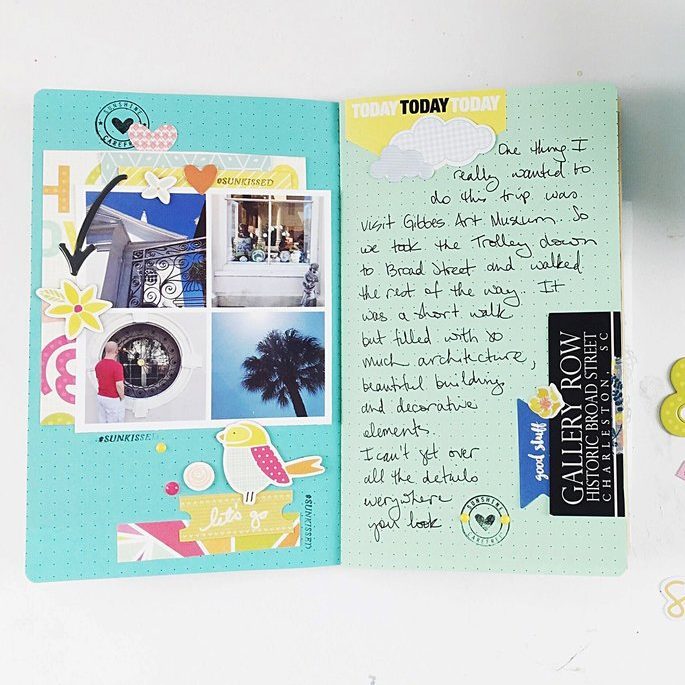 SUNSHINE
CAREFREE
#SUNKISSED
#SUNKISSED
let's go
#SUNKISSED
TODAY TODAY TODAY
One thing I
really wanted to
do this trip was
visit Gibbes Art Museum. So
we took the Trolley down
to Broad Street and walked
the rest of the way. It
was a short walk
but filled with so
much architecture,
beautiful buildings
and decorative
elements.
I can't get over
all the details
everywhere
you look
good stuff
GALLERY ROW
HISTORIC BROAD STREET
CHARLESTON, SC
SUNSHINE
CAREFREE
8